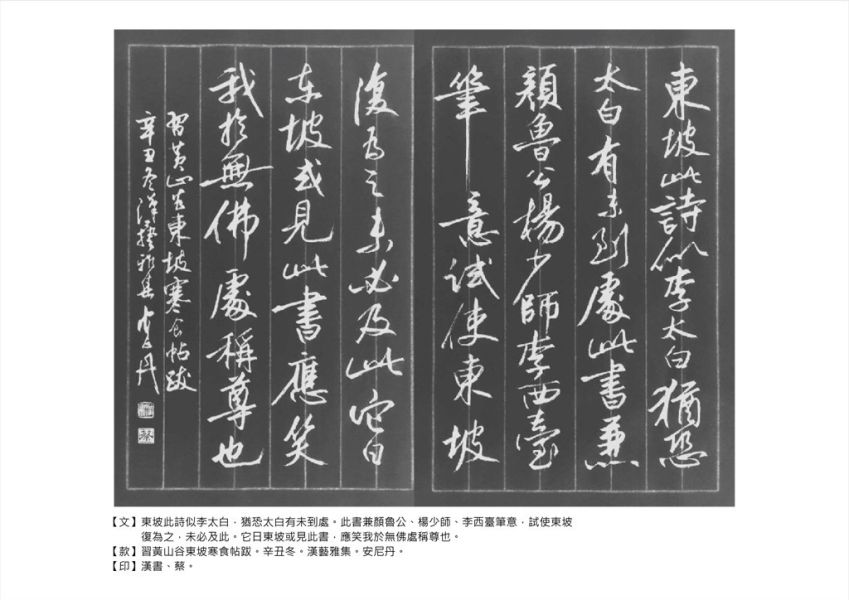 東坡此詩似李太白猶恐
太白有未到處此書兼
顏魯公楊少師李西臺
筆意試使東坡
復為之未必及此它日
東坡或見此書應笑
我於無佛處稱尊也
習黃山谷東坡寒食帖跋
辛丑冬漢藝雅集安尼丹
【文】東坡此詩似李太白，猶恐太白有未到處。此書兼顏魯公、楊少師、李西臺筆意，試使東坡
復為之，未必及此。它日東坡或見此書，應笑我於無佛處稱尊也。
【款】習黃山谷東坡寒食帖跋。辛丑冬。漢藝雅集。安尼丹。
【印】漢書、蔡。